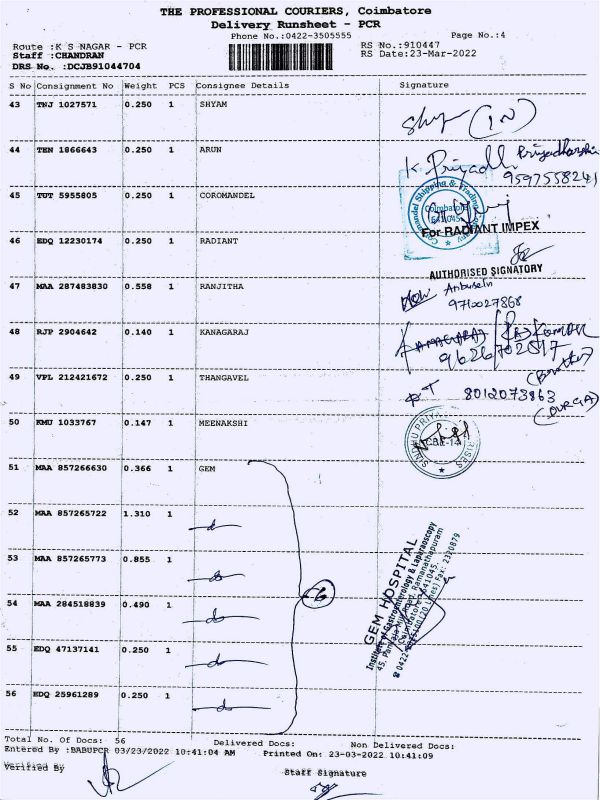 THE PROFESSIONAL COURIERS, Coimbatore
Delivery Runsheet - PCR
Phone No.:0422-3505555 Page No.:4
Route :K S NAGAR - PCR RS No.:910447
Staff :CHANDRAN RS Date:23-Mar-2022
DRS No. :DCJB91044704
S No Consignment No Weight PCS Consignee Details Signature
43 TNJ 1027571 0.250 1 SHYAM
(IN)
44 TEN 1866643 0.250 1 ARUN
K. Priyadh Priyadharshi
9597558241
45 TUT 5955805 0.250 1 COROMANDEL
Coromandel Shipping & Trading Company
Coimbatore
641 045
46 EDQ 12230174 0.250 1 RADIANT
For RADIANT IMPEX
AUTHORISED SIGNATORY
47 MAA 287483830 0.558 1 RANJITHA
9710027868
48 RJP 2904642 0.140 1 KANAGARAJ
KANAGARAJ
9626702517
(Brother)
49 VPL 212421672 0.250 1 THANGAVEL
8012073863
(DURGA)
50 KMU 1033767 0.147 1 MEENAKSHI
51 MAA 857266630 0.366 1 GEM
52 MAA 857265722 1.310 1
53 MAA 857265773 0.855 1
54 MAA 284518839 0.490 1
55 EDQ 47137141 0.250 1
56 EDQ 25961289 0.250 1
6
GEM HOSPITAL
Institute of Gastroenterology & Laparoscopy
Coimbatore - 641045.
Total No. Of Docs: 56 Delivered Docs: Non Delivered Docs:
Entered By :BABUPCR 03/23/2022 10:41:04 AM Printed On: 23-03-2022 10:41:09
Verified By Staff Signature